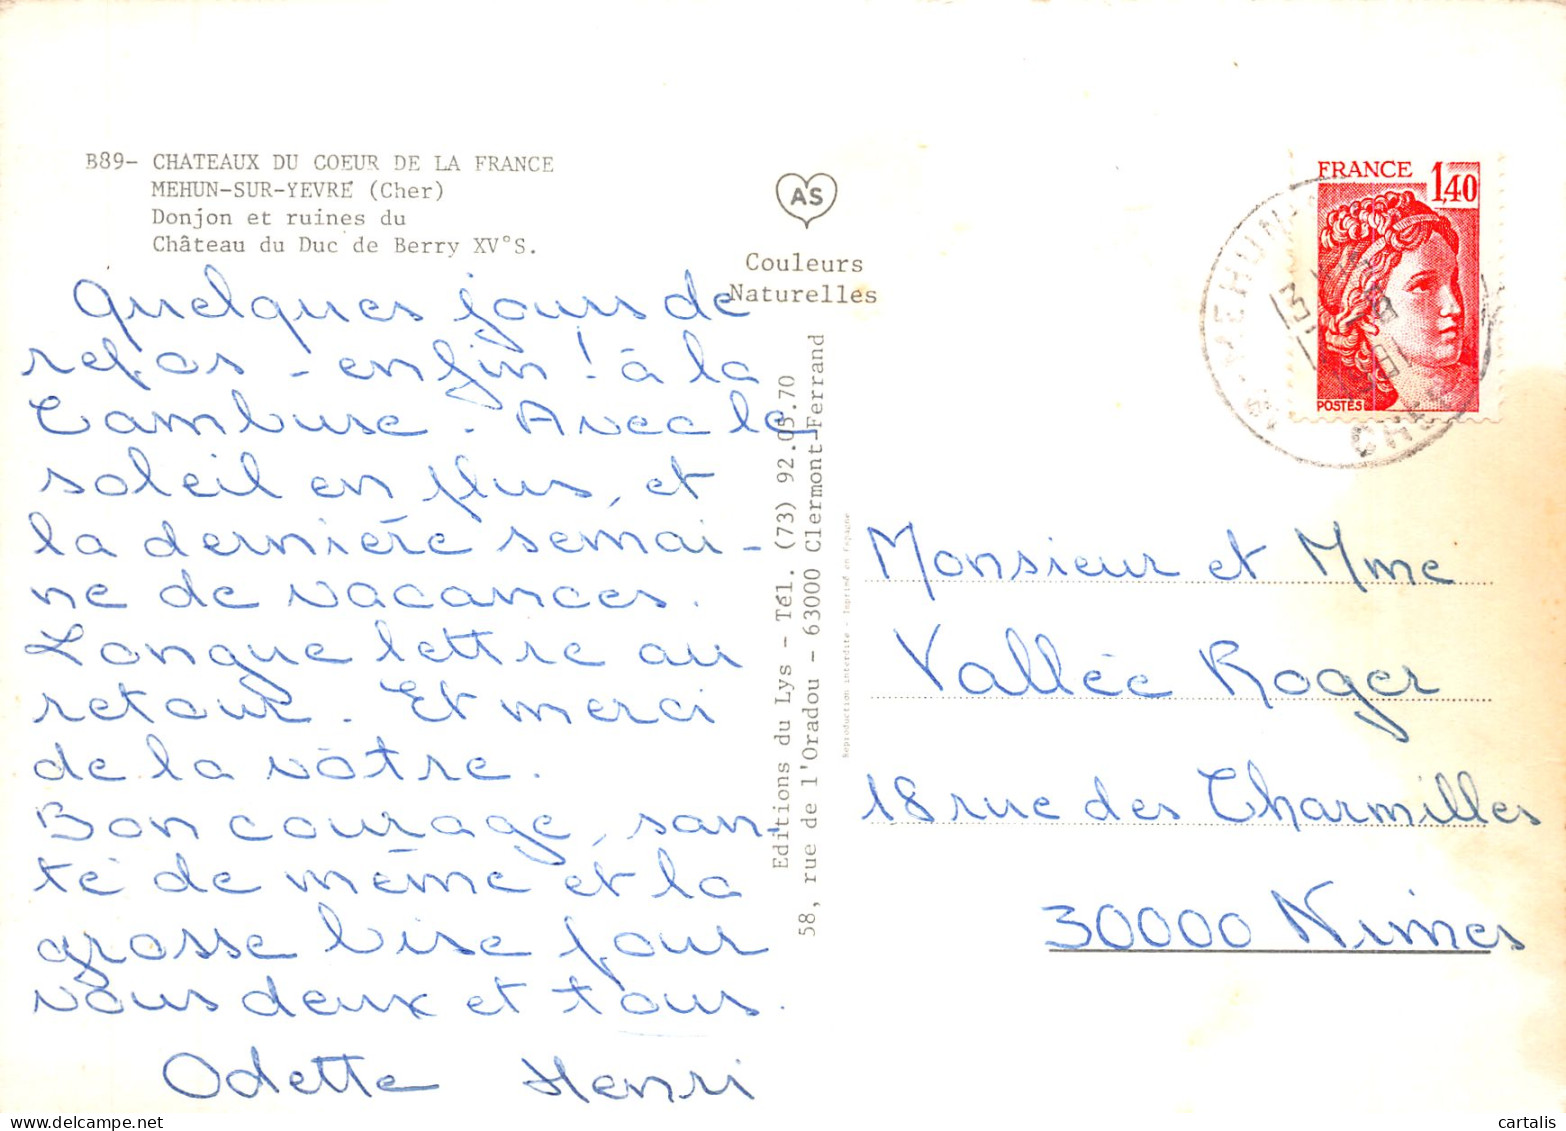 B89- CHATEAUX DU COEUR DE LA FRANCE
MEHUN-SUR-YEVRE (Cher)
Donjon et ruines du
Château du Duc de Berry XV°S.
Quelques jours de
repos - enfin ! à la
Cambuse. Avec le
soleil en plus, et
la dernière semai-
ne de vacances.
Longue lettre au
retour. Et merci
de la vôtre.
Bon courage, san-
té de même et la
grosse bise pour
vous deux et tous.
Odette Henri
AS
Couleurs
Naturelles
Editions du Lys - Tél. (73) 92.03.70
58, rue de l'Oradou - 63000 Clermont-Ferrand
Reproduction interdite - Imprimé en Espagne
FRANCE 1,40
POSTES
MEHUN
CHER
Monsieur et Mme
Vallée Roger
18 rue des Charmilles
30000 Nimes
cartalis